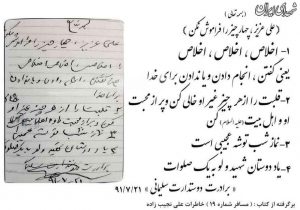 شهدای ایران
بسمه تعالی
( علی عزیز، چهار چیز را فراموش نکن )
۱- اخلاص ، اخلاص ، اخلاص
یعنی گفتن ، انجام دادن و یا ندادن برای خدا
۲- قلبت را از هر چیز غیر او خالی کن و پر از محبت
او و اهل بیت (علیه السلام) کن
۳- نماز شب توشه عجیبی است
۴- یاد دوستان شهید ولو به یک صلوات
« برادرت دوستدارت سلیمانی » ۹۱/۷/۲۱
برگرفته از کتاب : ( مسافر شماره ۱۹ ) خاطرات علی نجیب زاده
بسمه تعالی
علی عزیز چهار چیز را فراموش نکن